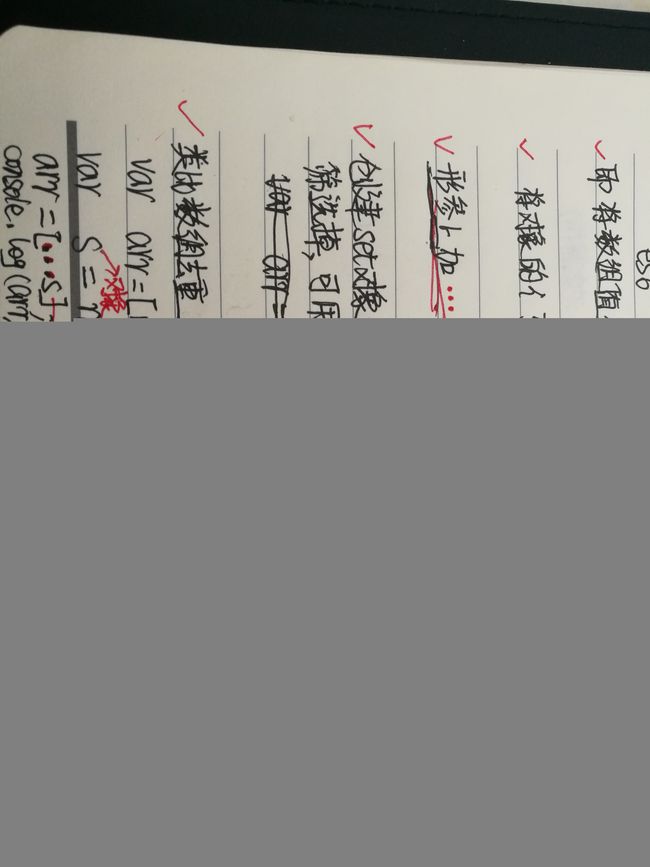 es6
✓即将数组值
✓将对象的{
✓形参上加...
✓创建set对象
筛选掉,可用
var arr=
✓类似数组去重
var arr=[
var s=
→对象
arr=[...s]
console.log(arr,